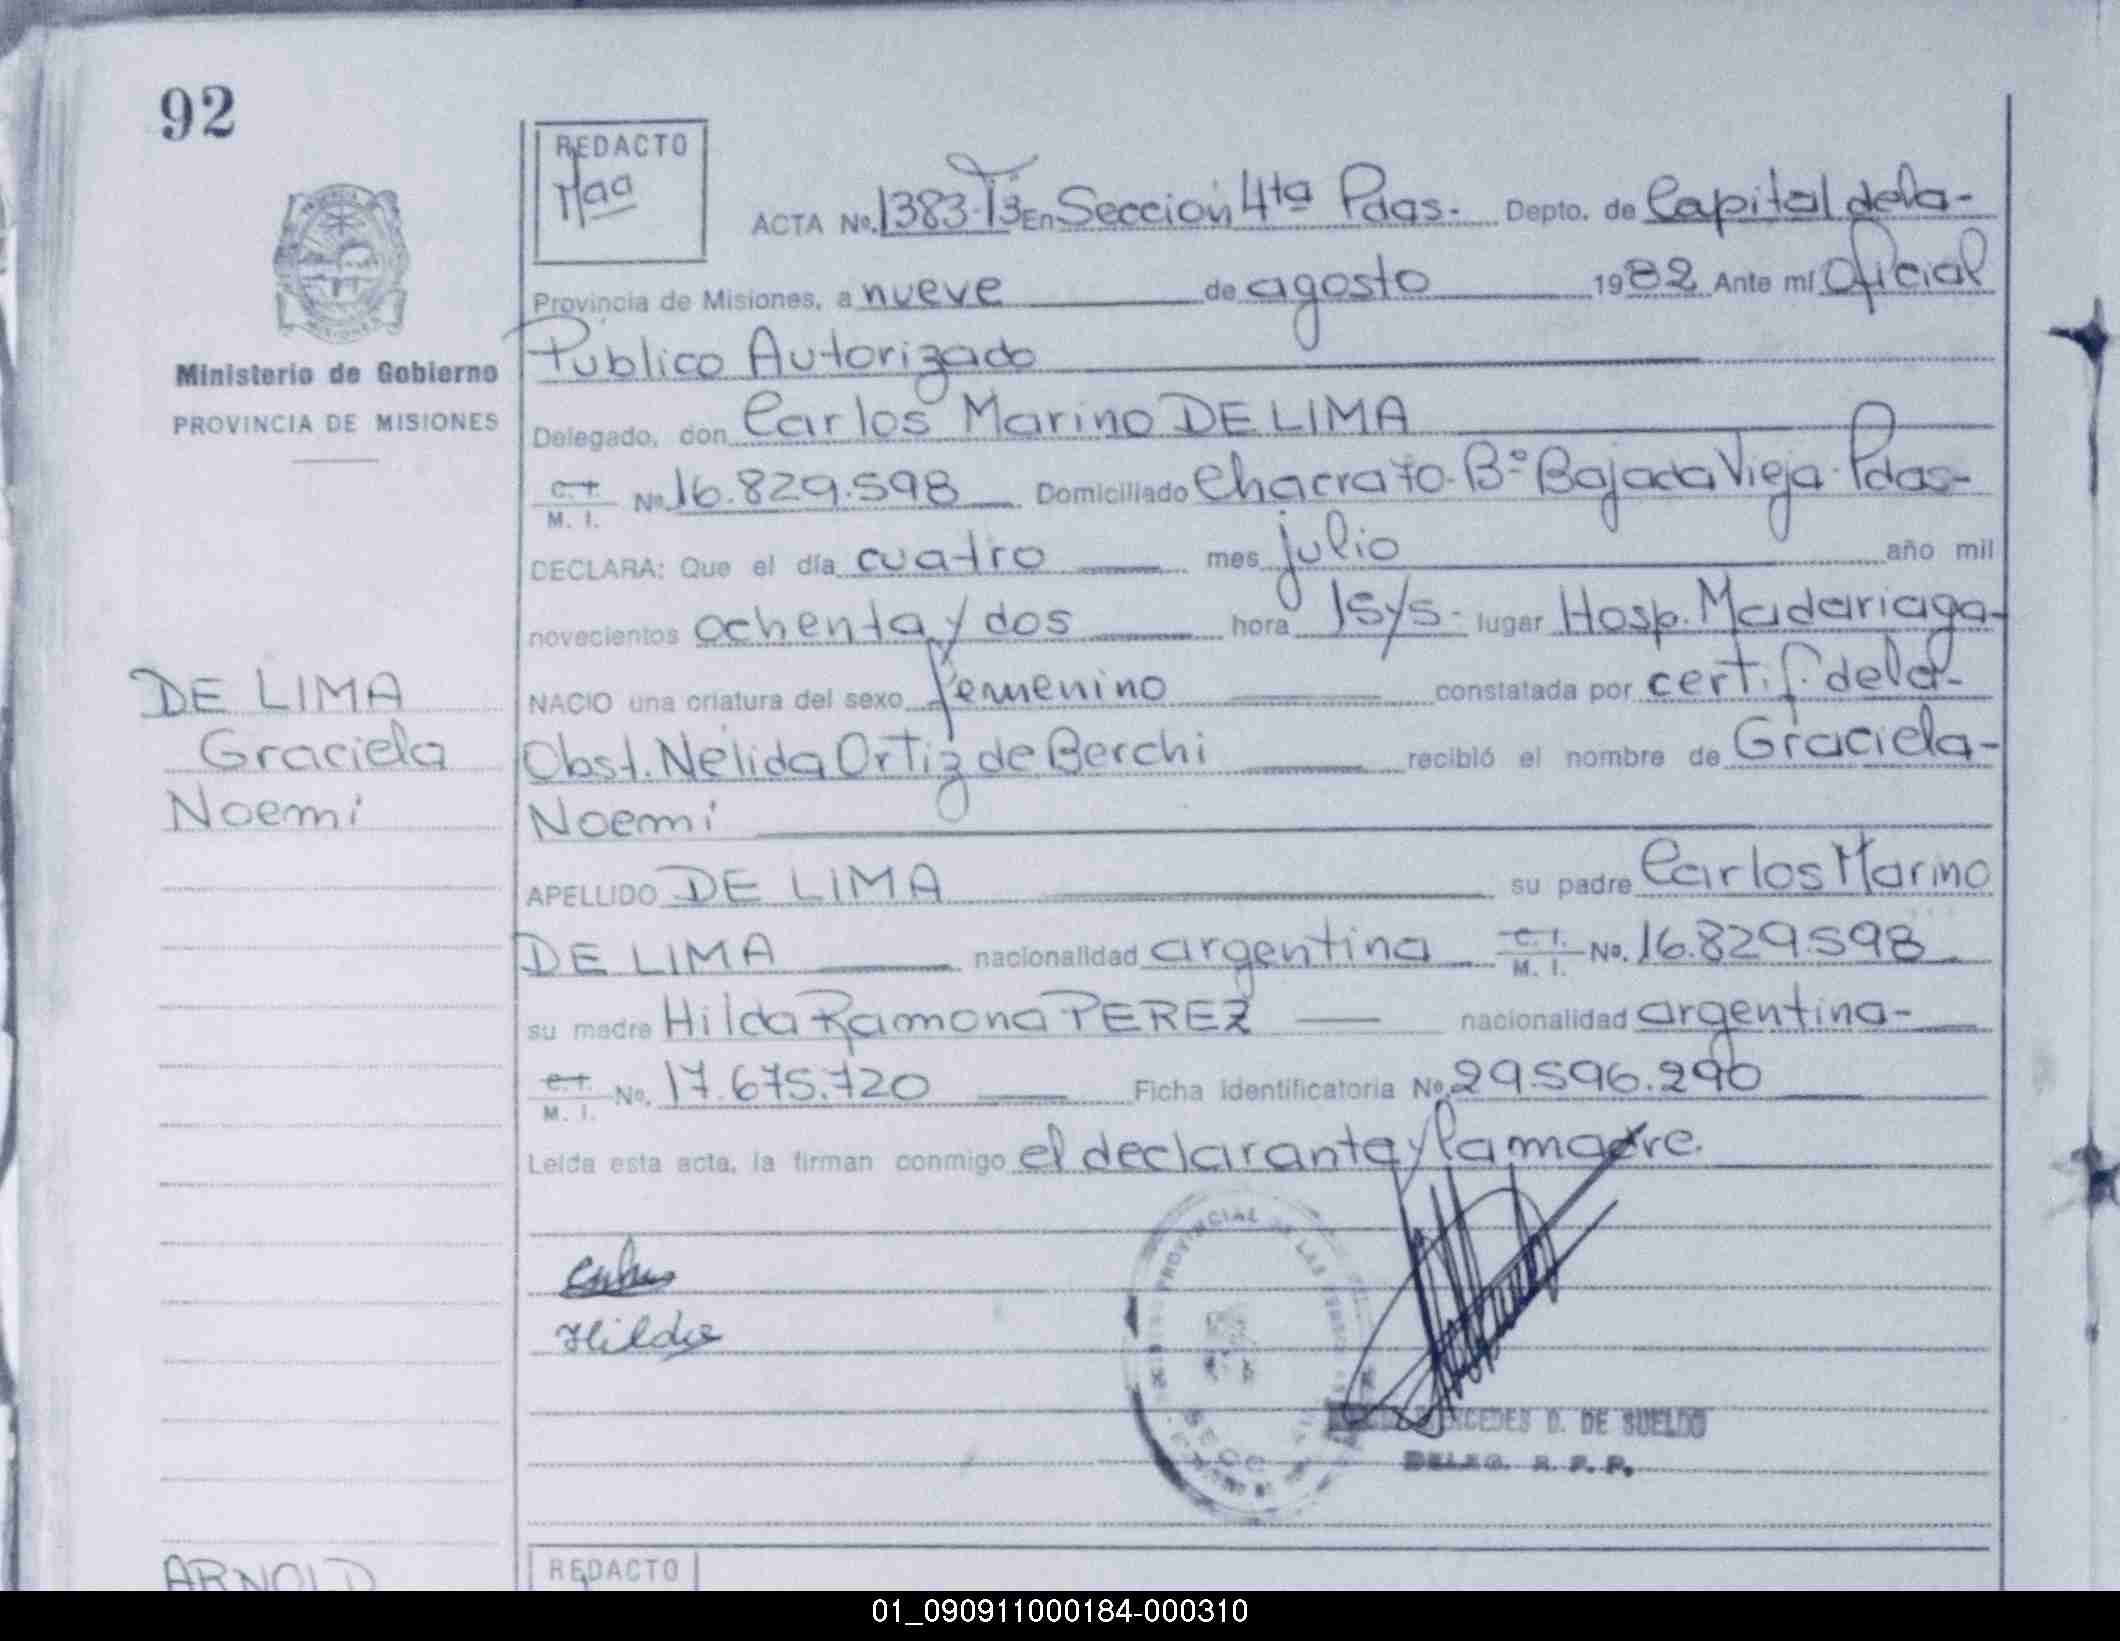 92
REDACTO
ACTA No. 1383-T3 En Sección 4ta Pdas.- Depto. de Capital de la-
Provincia de Misiones, a nueve de agosto 1982 Ante mí Oficial
Público Autorizado
Ministerio de Gobierno
PROVINCIA DE MISIONES
Delegado, don Carlos Marino DE LIMA
C. I. M. I. No. 16.829.598 Domiciliado Chacra 70-Bº Bajada Vieja-Pdas-
DECLARA: Que el día cuatro mes julio año mil
novecientos ochenta y dos hora 15y5- lugar Hosp. Madariaga-
NACIO una criatura del sexo femenino constatada por certif. de la-
Obst. Nélida Ortiz de Berchi recibió el nombre de Graciela-
Noemí
DE LIMA
Graciela
Noemí
APELLIDO DE LIMA su padre Carlos Marino
DE LIMA nacionalidad argentina C. I. M. I. No. 16.829.598
su madre Hilda Ramona PEREZ nacionalidad argentina-
C. I. M. I. No. 17.675.720 Ficha identificatoria No. 29.596.290
Leída esta acta, la firman conmigo el declarante y la madre.
Hilda
PROVINCIAL DE LAS
SECC
MERCEDES D. DE SUELDO
DELEG. R. P. P.
ARNOLD
REDACTO
01_090911000184-000310